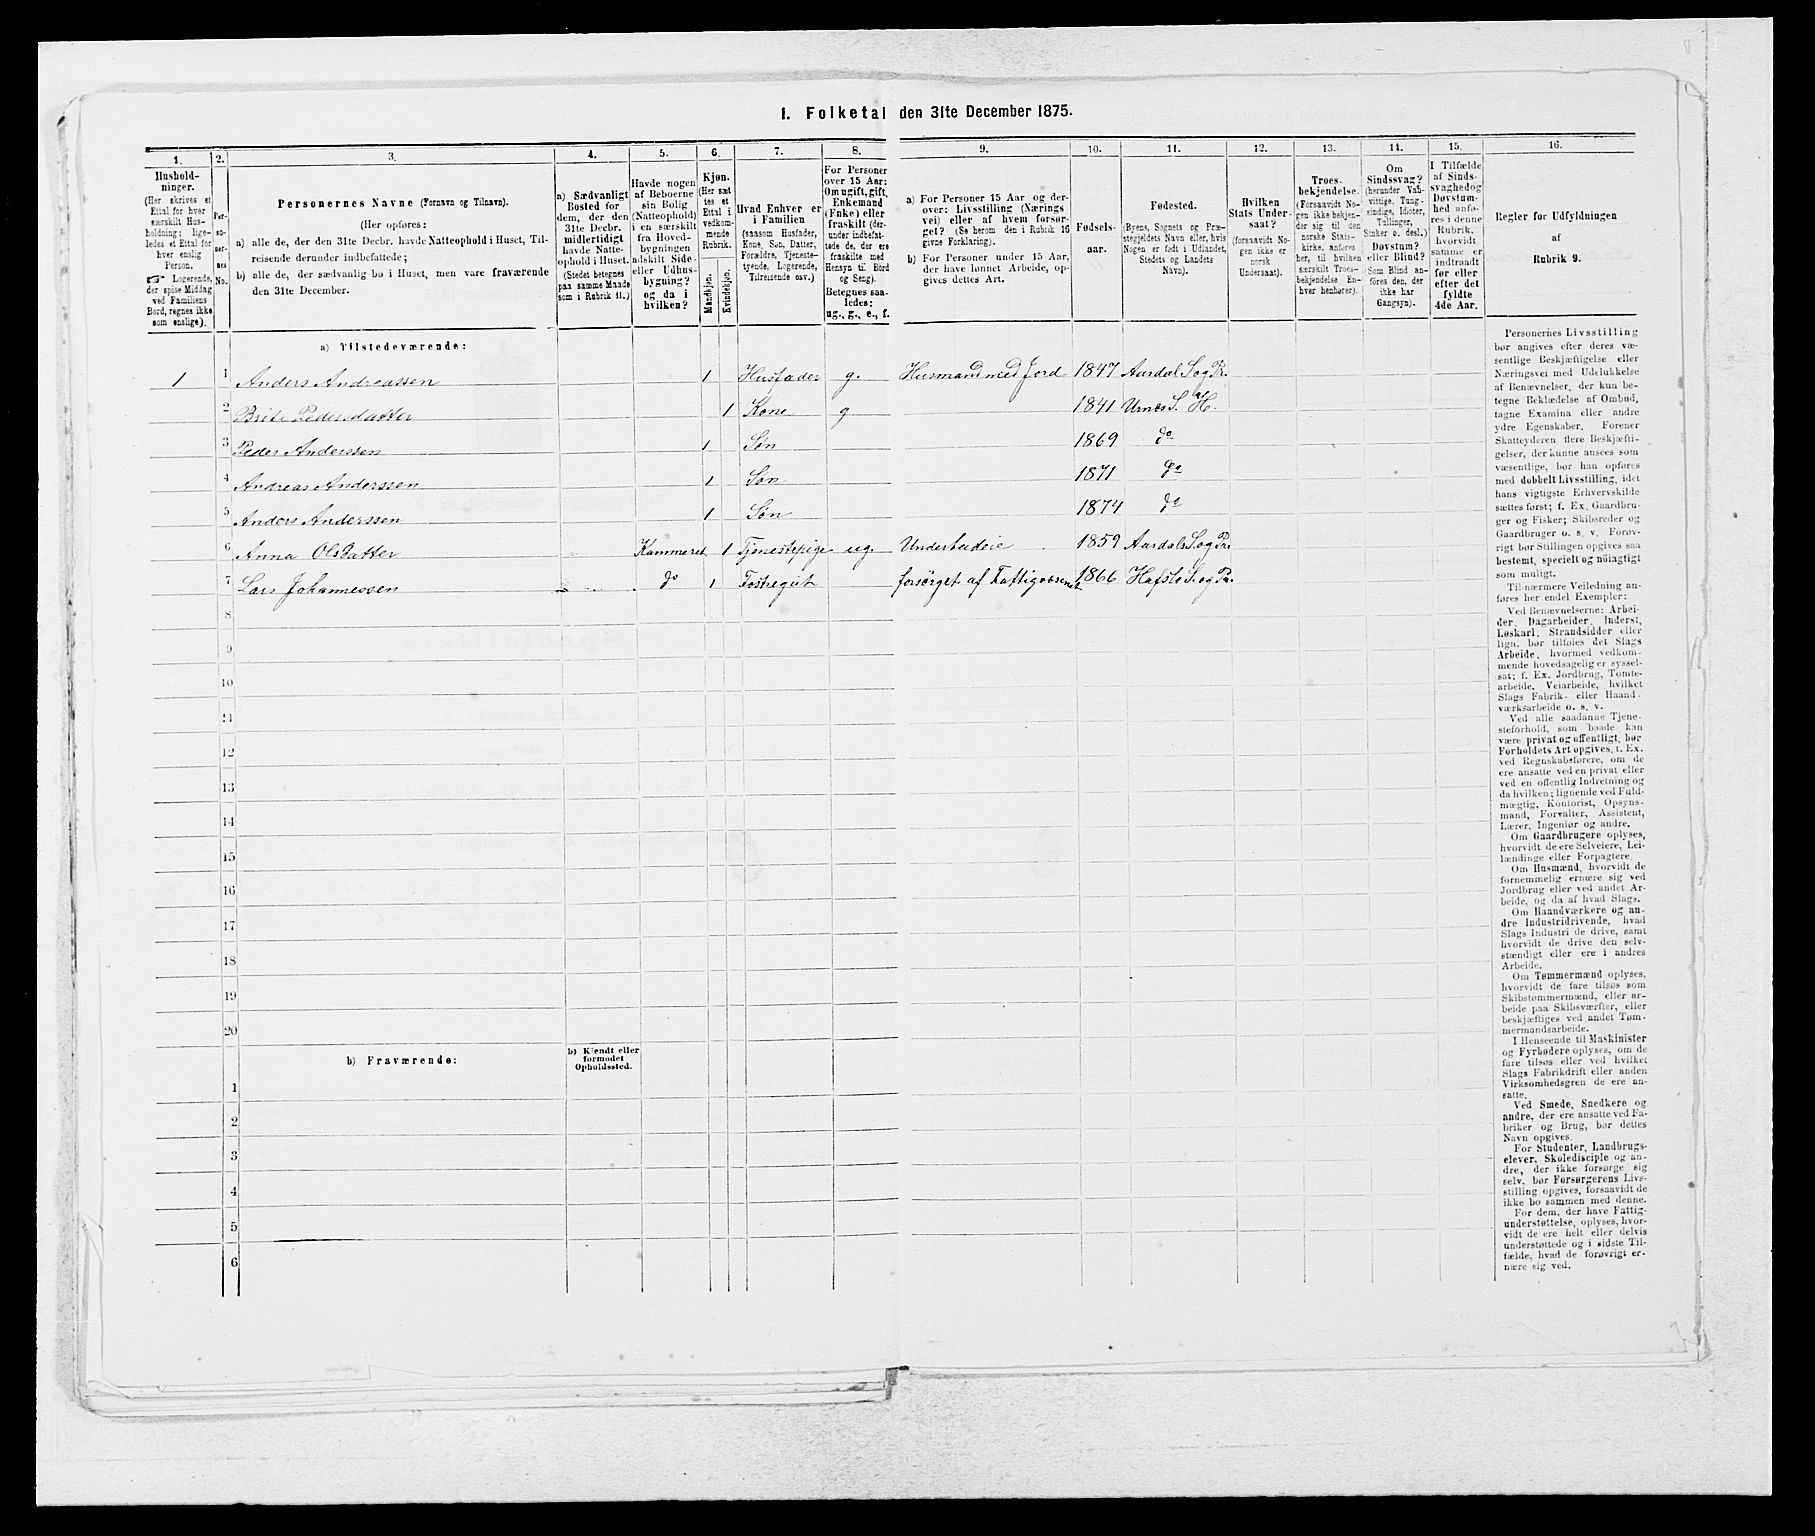 I. Folketal den 31te December 1875.
1. 2. 3. 4. 5. 6. 7. 8. 9. 10. 11. 12. 13. 14. 15. 16.
Hushold-
ninger.
(Her skrives et
Ettal for hver
særskilt Hus-
holdning; lige-
ledes et Ettal for
hver enslig
Person.
☞ Logerende,
der spise Middag
ved Familiens
Bord, regnes ikke
som enslige).
Per-
so-
ner-
nes
No.
Personernes Navne (Fornavn og Tilnavn).
(Her opføres:
a) alle de, der den 31te Decbr. havde Natteophold i Huset, Til-
reisende derunder indbefattede;
b) alle de, der sædvanlig bo i Huset, men vare fraværende
den 31te December.
a) Sædvanligt
Bosted for
dem, der den
31te Decbr.
midlertidigt
havde Natte-
ophold i Huset.
(Stedet betegnes
paa samme Maade
som i Rubrik 11.)
Havde nogen
af Beboerne
sin Bolig
(Natteophold)
i en særskilt
fra Hoved-
bygningen
adskilt Side-
eller Udhus-
bygning?
og da i
hvilken?
Kjøn.
(Her sæt-
tes et
Ettal i
vedkom-
mende
Rubrik.
Mandkjøn.
Kvindekjøn.
Hvad Enhver er
i Familien
(saasom Husfader,
Kone, Søn, Datter,
Forældre, Tjeneste-
tyende, Logerende,
Tilreisende osv.)
For Personer
over 15 Aar:
Om ugift, gift,
Enkemand
(Enke) eller
fraskilt (der-
under indbefat-
tede de, der ere
fraskilte med
Hensyn til Bord
og Seng).
Betegnes saa-
ledes:
ug., g., e., f.
a) For Personer 15 Aar og der-
over: Livsstilling (Nærings
vei) eller af hvem forsør-
get? (Se herom den i Rubrik 16
givne Forklaring).
b) For Personer under 15 Aar,
der have lønnet Arbeide, op-
gives dettes Art.
Fødsels-
aar.
Fødested.
(Byens, Sognets og Præ-
stegjeldets Navn eller, hvis
Nogen er født i Udlandet,
Stedets og Landets
Navn).
Hvilken
Stats Under-
saat?
(forsaavidt No-
gen ikke er
norsk
Undersaat).
Troes-
bekjendelse.
(Forsaavidt No-
gen ikke bekjen-
der sig til den
norske Stats-
kirke, anføres
her, til hvilken
særskilt Troes-
bekjendelse En-
hver henhører).
Om
Sindssvag?
(herunder Van-
vittige, Tung-
sindige, Idioter,
Tullinger,
Sinker o. desl.)
Døvstum?
eller Blind?
(Som Blind an-
føres den, der
ikke har
Gangsyn).
I Tilfælde
af Sinds-
svaghed og
Døvstum-
hed anfø-
res i denne
Rubrik,
hvorvidt
samme er
indtraadt
før eller
efter det
fyldte
4de Aar.
Regler for Udfyldningen
af
Rubrik 9.
a) Tilstedeværende:
1 1 Anders Andreassen 1 Husfader g. Husmand med Jord 1847 Aardal S. og Pr.
2 Brite Pedersdatter 1 Kone g 1841 Urnes S. H.
3 Peder Anderssen 1 Søn 1869 do
4 Andreas Anderssen 1 Søn 1871 do
5 Anders Anderssen 1 Søn 1874 do
6 Anna Olsdatter Kammeret 1 Tjenestepige ug. Underbudeie 1859 Aardal S. og Pr.
7 Lars Johannessen do 1 Fostregut forsørget af 1866 Hafslo S. og Pr.
8
9
10
11
12
13
14
15
16
17
18
19
20
b) Fraværende:
b) Kjendt eller
formodet
Opholdssted.
1
2
3
4
5
6
Personernes Livsstilling
bør angives efter deres væ-
sentlige Beskjæftigelse eller
Næringsvei med Udelukkelse
af Benævnelser, der kun be-
tegne Beklædelse af Ombud,
tagne Examina eller andre
ydre Egenskaber. Forener
Skatteyderen flere Beskjæfti-
gelser, der kunne ansees som
væsentlige, bør han opføres
med dobbelt Livsstilling, idet
hans vigtigste Erhvervskilde
sættes først; f. Ex. Gaardbru-
ger og Fisker; Skibsreder og
Gaardbruger o. s. v. Forøv-
rigt bør Stillingen opgives saa
bestemt, specielt og nøiagtigt
som muligt.
Til nærmere Veiledning an-
føres her endel Exempler:
Ved Benævnelserne: Arbei-
der, Dagarbeider, Inderst,
Løskarl, Strandsidder eller
lign. bør tilføies det Slags
Arbeide, hvormed vedkom-
mende hovedsagelig er syssel-
sat; f. Ex. Jordbrug, Tomte-
arbeide, Veiarbeide, hvilket
Slags Fabrik- eller Haand-
værksarbeide o. s. v.
Ved alle saadanne Tjene-
steforhold, som baade kan
være privat og offentligt, bør
Forholdets Art opgives, t. Ex.
ved Regnskabsførere, om de
ere ansatte ved en privat eller
ved en offentlig Indretning og
da hvilken; lignende ved Fuld-
mægtig, Kontorist, Opsyns-
mand, Forvalter, Assistent,
Lærer, Ingeniør og andre.
Om Gaardbrugere oplyses,
hvorvidt de ere Selveiere, Lei-
lændinge eller Forpagtere.
Om Husmænd, hvorvidt de
fornemmelig ernære sig ved
Jordbrug eller ved andet Ar-
beide, og da af hvad Slags.
Om Haandværkere og an-
dre Industridrivende, hvad
Slags Industri de drive, samt
hvorvidt de drive den selv-
stændigt eller ere i andres
Arbeide.
Om Tømmermænd oplyses,
hvorvidt de fare tilsøs som
Skibstømmermænd, eller ar-
beide paa Skibsværfter, eller
beskjæftiges ved andet Tøm-
mermandsarbeide.
I Henseende til Maskinister
og Fyrbødere oplyses, om de
fare tilsøs eller ved hvilket
Slags Fabrikdrift eller anden
Virksomhedsgren de ere an-
satte.
Ved Smede, Snedkere og
andre, der ere ansatte ved Fa-
briker og Brug, bør dettes
Navn opgives.
For Studenter, Landbrugs-
elever, Skoledisciple og an-
dre, der ikke forsørge sig
selv, bør Forsørgerens Livs-
stilling opgives, forsaavidt de
ikke bo sammen med denne.
For dem, der have Fattig-
understøttelse, oplyses, hvor-
vidt de ere helt eller delvis
understøttede og i sidste Til-
fælde, hvad de forøvrigt er-
nære sig ved.